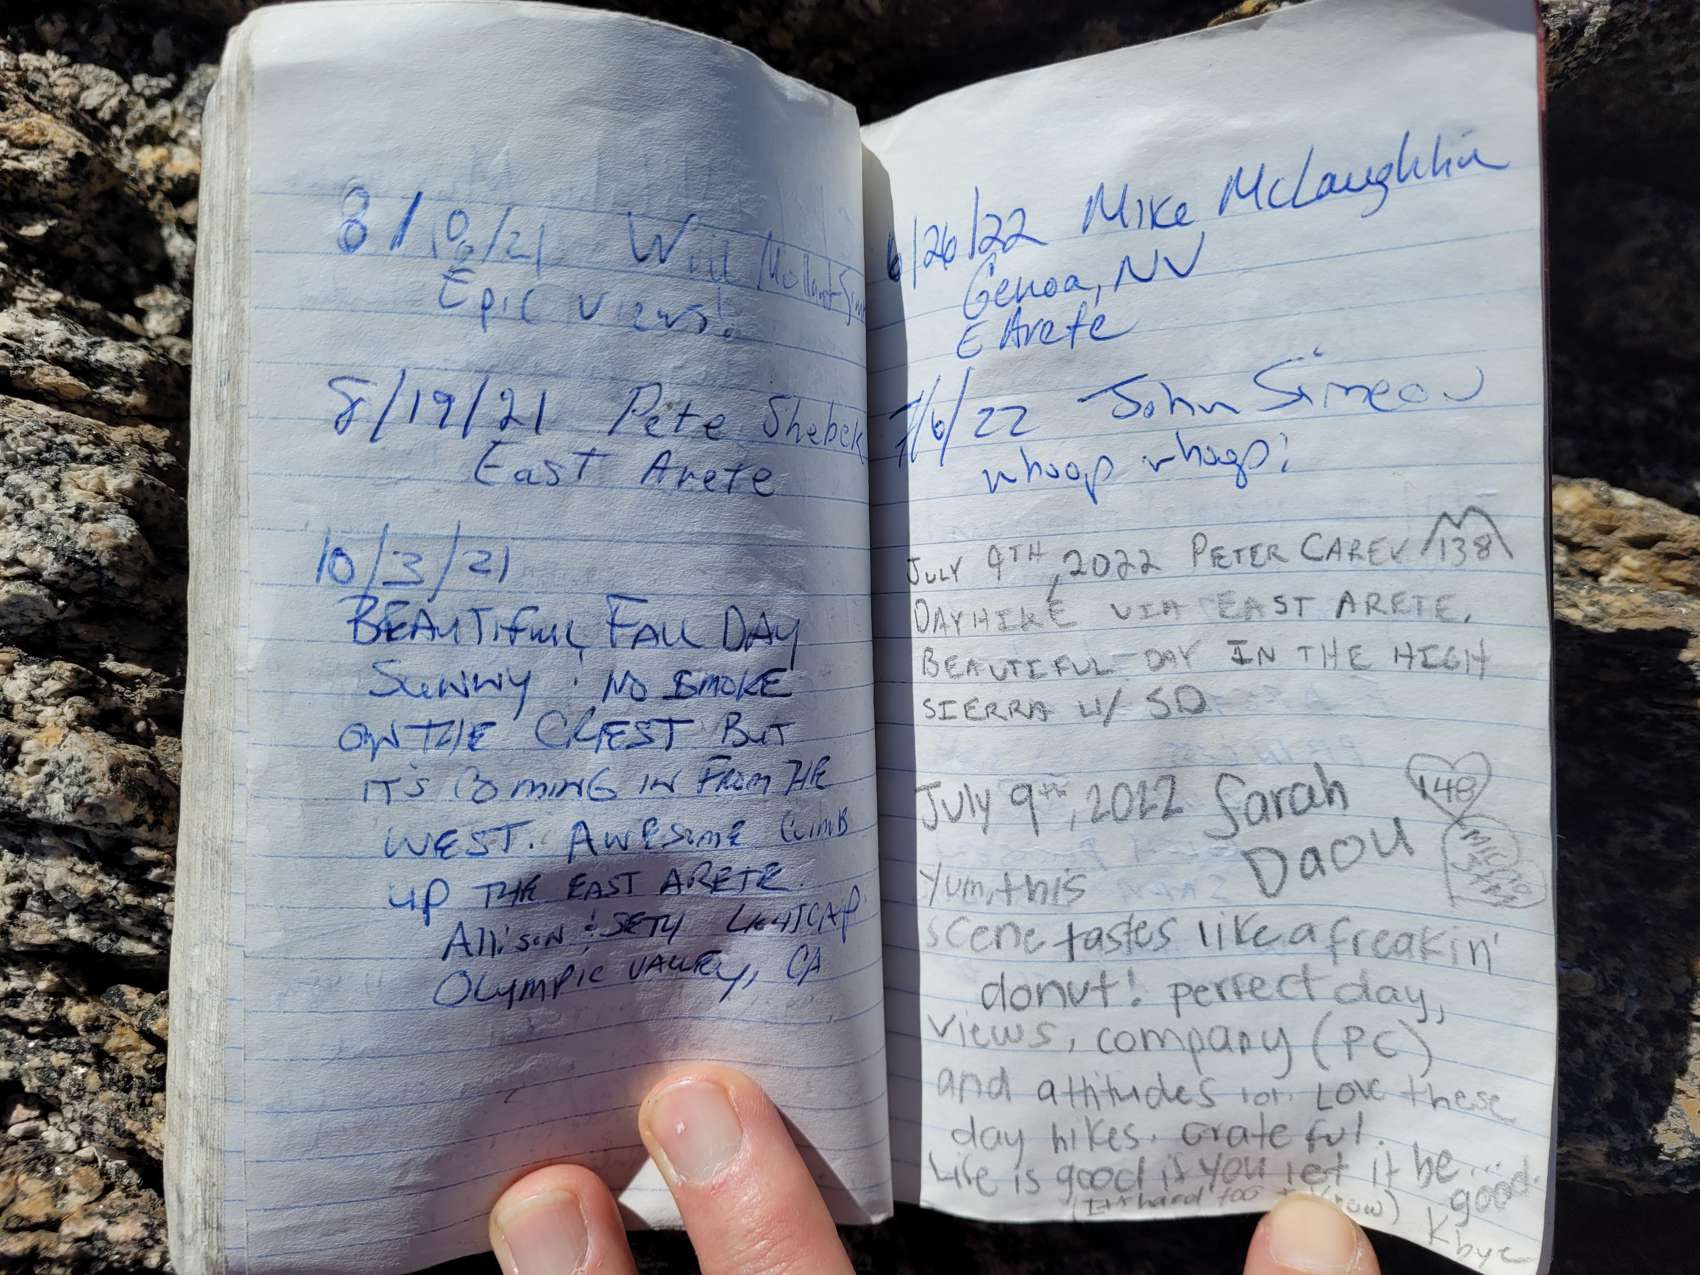 8/10/21 Will
Epic views!
8/19/21 Pete Shebek
East Arete
10/3/21
BEAUTIFUL FALL DAY
SUNNY. NO SMOKE
ON THE CREST BUT
IT'S COMING IN FROM THE
WEST. AWESOME CLIMB
UP THE EAST ARETE.
Allison & SETH LIGHTCAP
OLYMPIC VALLEY, CA
6/26/22 Mike McLaughlin
Genoa, NV
E Arete
7/6/22 John Simeon
whoop whoop!
JULY 9TH, 2022 PETER CAREY 138
DAYHIKE VIA EAST ARETE.
BEAUTIFUL DAY IN THE HIGH
SIERRA W/ SD
July 9th, 2022 Sarah 148
Daou
Yum, this
scene tastes like a freakin'
donut! perfect day,
views, company (PC)
and attitudes lol. Love these
day hikes. Grateful.
Life is good if you let it be...
good.
(It's hard too
Kbye